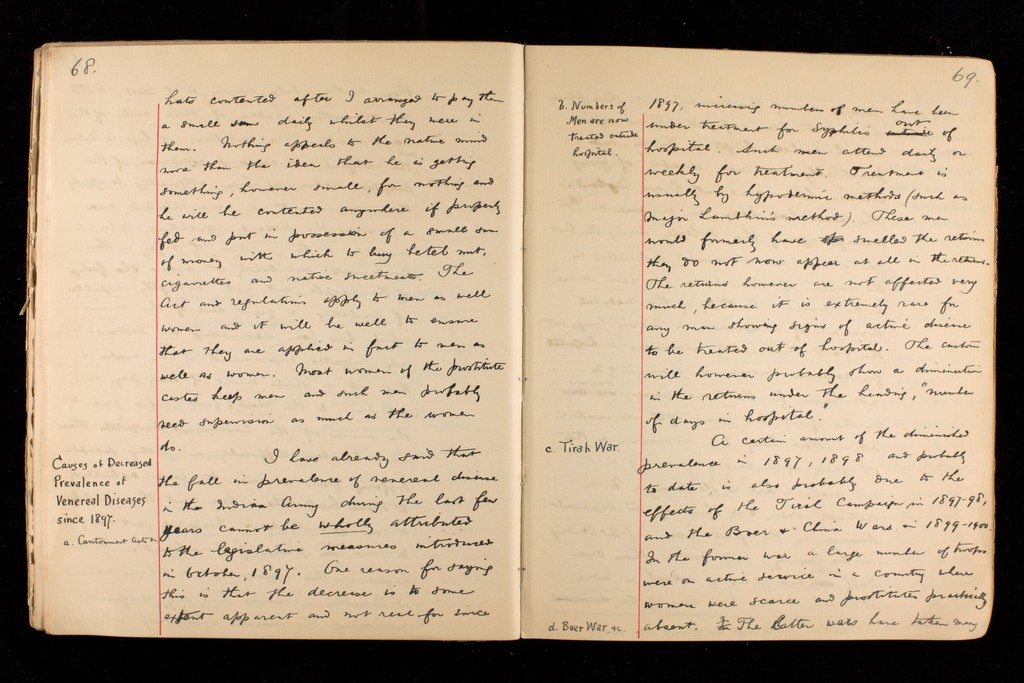 68.
huts contented after I arranged to pay them
a small sum daily whilst they were in
them. Nothing appeals to the native mind
more than the idea that he is getting
something, however small, for nothing and
he will be contented anywhere if properly
fed and put in possession of a small sum
of money with which to buy betel nut,
cigarettes and native sweetmeats. The
Act and regulations apply to men as well
women and it will be well to ensure
that they are applied in fact to men as
well as women. Most women of the prostitute
castes keep men and such men probably
need supervision as much as the women
do.
Causes of Decreased
Prevalence of
Venereal Diseases
since 1897.
a. Cantonment Acts &c
I have already said that
the fall in prevalence of venereal disease
in the Indian Army during the last few
years cannot be wholly attributed
to the legislative measures introduced
in October, 1897. One reason for saying
this is that the decrease is to some
extent apparent and not real for since
69.
b. Numbers of
Men are now
treated outside
hospital.
1897, increasing numbers of men have been
under treatment for Syphilis out of
hospital. Such men attend daily or
weekly for treatment. Treatment is
usually by hypodermic methods (such as
Major Lambkin's method). These men
would formerly have swelled the returns
they do not now appear at all in the returns.
The returns however are not affected very
much, because it is extremely rare for
any man showing signs of active disease
to be treated out of hospital. The custom
will however probably show a diminution
in the returns under the heading, "number
of days in hospital."
c. Tirah War
A certain amount of the diminished
prevalence in 1897, 1898 and probably
to date, is also probably due to the
effects of the Tirah Campaign in 1897-98,
and the Boer & China Wars in 1899-1900.
In the former war a large number of troops
were on active service in a country where
women were scarce and prostitutes practically
d. Boer War, &c.
absent. The latter wars have taken many